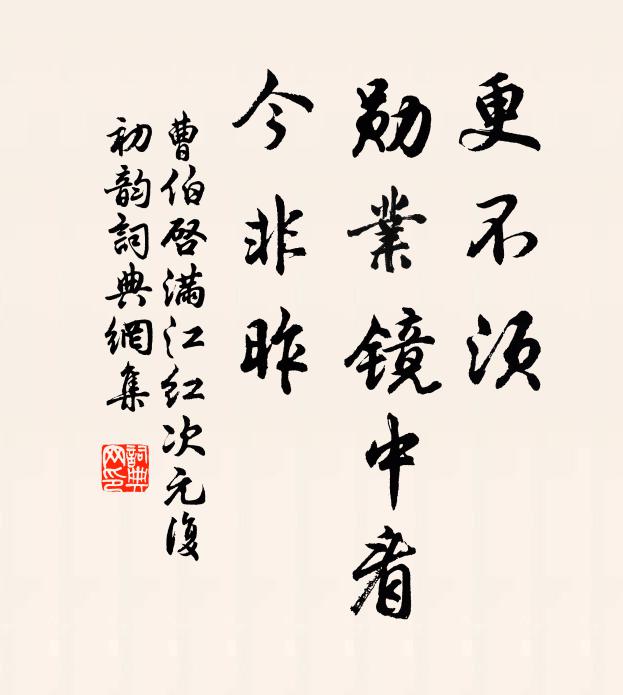 更不须
勋業镜中看
今非昨
曹伯启满江红次元復
初韵詞典網集
詞典
网印